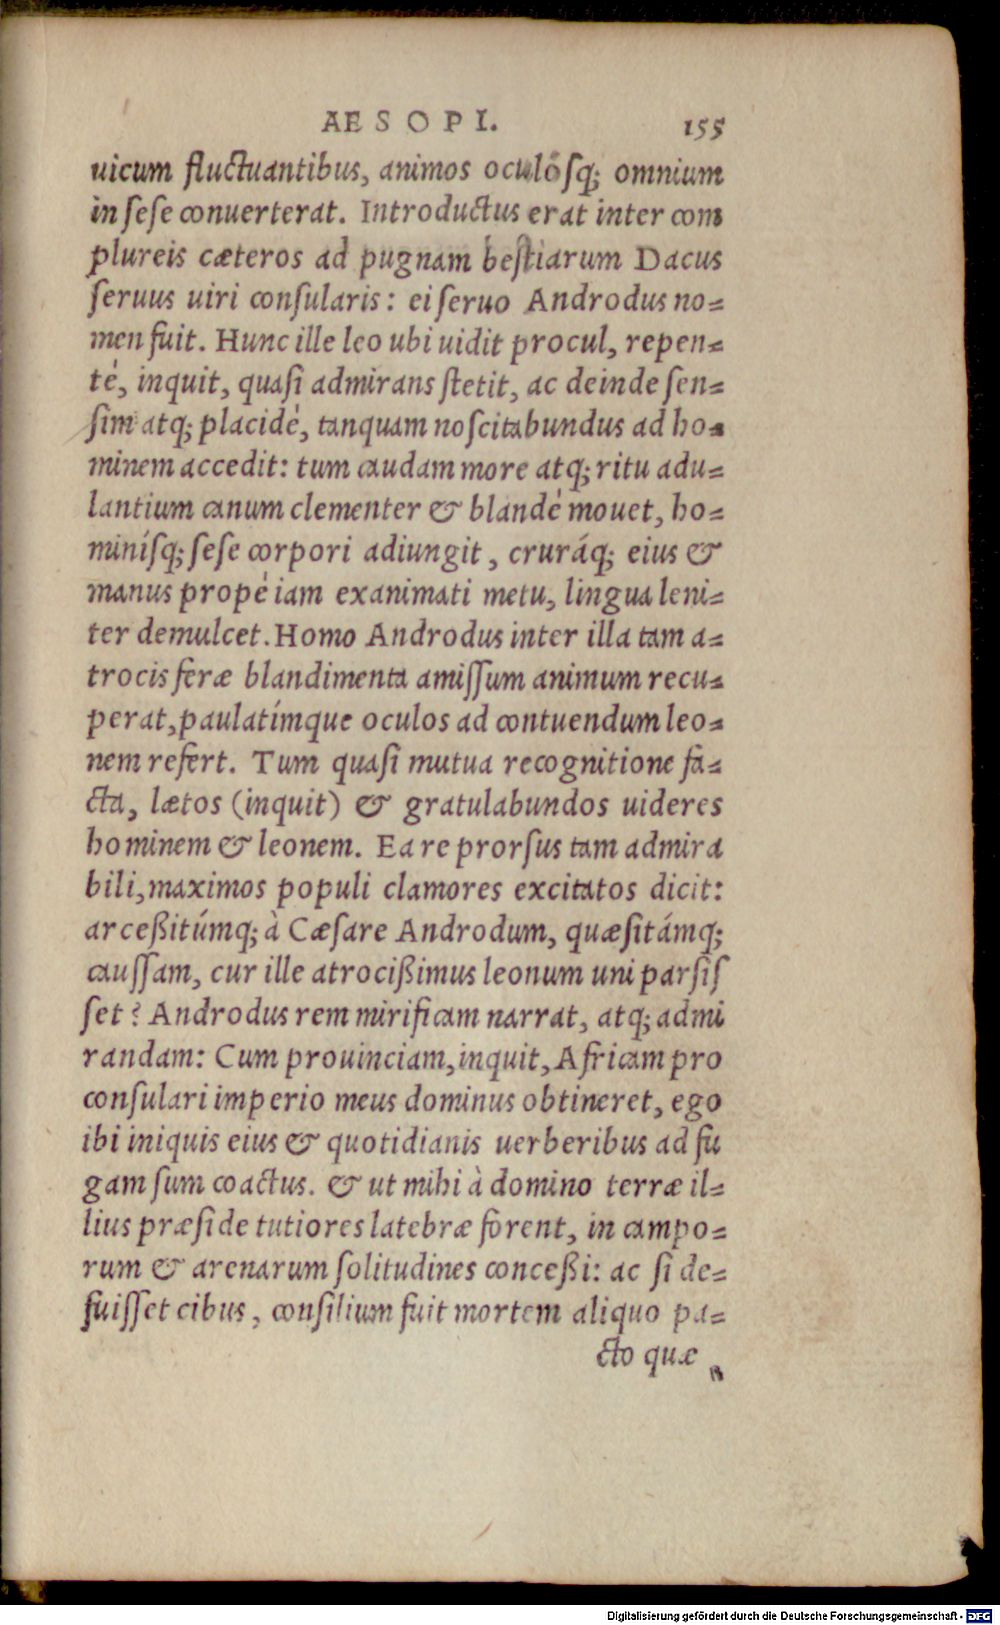 AESOPI. 155
uicum fluctuantibus, animos oculósq; omnium
in sese conuerterat. Introductus erat inter com
plureis cæteros ad pugnam bestiarum Dacus
seruus uiri consularis: ei seruo Androdus no-
men fuit. Hunc ille leo ubi uidit procul, repen-
tè, inquit, quasi admirans stetit, ac deinde sen-
sim atq; placidè, tanquam noscitabundus ad ho-
minem accedit: tum caudam more atq; ritu adu-
lantium canum clementer & blandè mouet, ho-
minísq; sese corpori adiungit, cruráq; eius &
manus propè iam exanimati metu, lingua leni-
ter demulcet. Homo Androdus inter illa tam a-
trocis feræ blandimenta amissum animum recu-
perat, paulatímque oculos ad contuendum leo-
nem refert. Tum quasi mutua recognitione fa-
cta, lætos (inquit) & gratulabundos uideres
hominem & leonem. Ea re prorsus tam admira
bili, maximos populi clamores excitatos dicit:
arceßitúmq; à Cæsare Androdum, quæsitámq;
caussam, cur ille atrocißimus leonum uni parsis
set? Androdus rem mirificam narrat, atq; admi
randam: Cum prouinciam, inquit, Africam pro
consulari imperio meus dominus obtineret, ego
ibi iniquis eius & quotidianis uerberibus ad fu
gam sum coactus. & ut mihi à domino terræ il-
lius præside tutiores latebræ forent, in campo-
rum & arenarum solitudines conceßi: ac si de-
fuisset cibus, consilium fuit mortem aliquo pa-
cto quæ
Digitalisierung gefördert durch die Deutsche Forschungsgemeinschaft - DFG